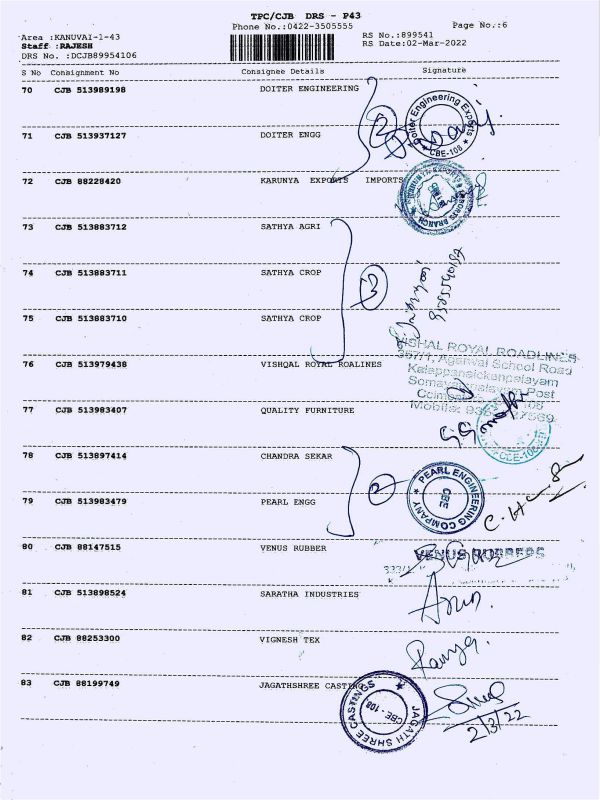 TPC/CJB DRS - P43
Phone No.:0422-3505555
Page No.:6
Area :KANUVAI-1-43
RS No.:899541
Staff :RAJESH
RS Date:02-Mar-2022
DRS No. :DCJB89954106
S No Consignment No Consignee Details Signature
70 CJB 513989198 DOITER ENGINEERING
Doiter Engineering Exports
* CBE-108 *
2
71 CJB 513937127 DOITER ENGG
72 CJB 88228420 KARUNYA EXPORTS IMPORTS
73 CJB 513883712 SATHYA AGRI
74 CJB 513883711 SATHYA CROP
3
75 CJB 513883710 SATHYA CROP
VISHAL ROYAL ROADLINES
357/1, Agarwal School Road
76 CJB 513979438 VISHQAL ROYAL ROALINES
Kalappanaickenpalayam
Post
Mobile:
77 CJB 513983407 QUALITY FURNITURE
78 CJB 513897414 CHANDRA SEKAR
2
PEARL ENGINEERING COMPANY *
CBE
79 CJB 513983479 PEARL ENGG
80 CJB 88147515 VENUS RUBBER
VENUS RUBBERS
81 CJB 513898524 SARATHA INDUSTRIES
Arun.
82 CJB 88253300 VIGNESH TEX
Ramya.
83 CJB 88199749 JAGATHSHREE CASTING
JAGATH SHREE CASTINGS
CBE - 108
2/3/22